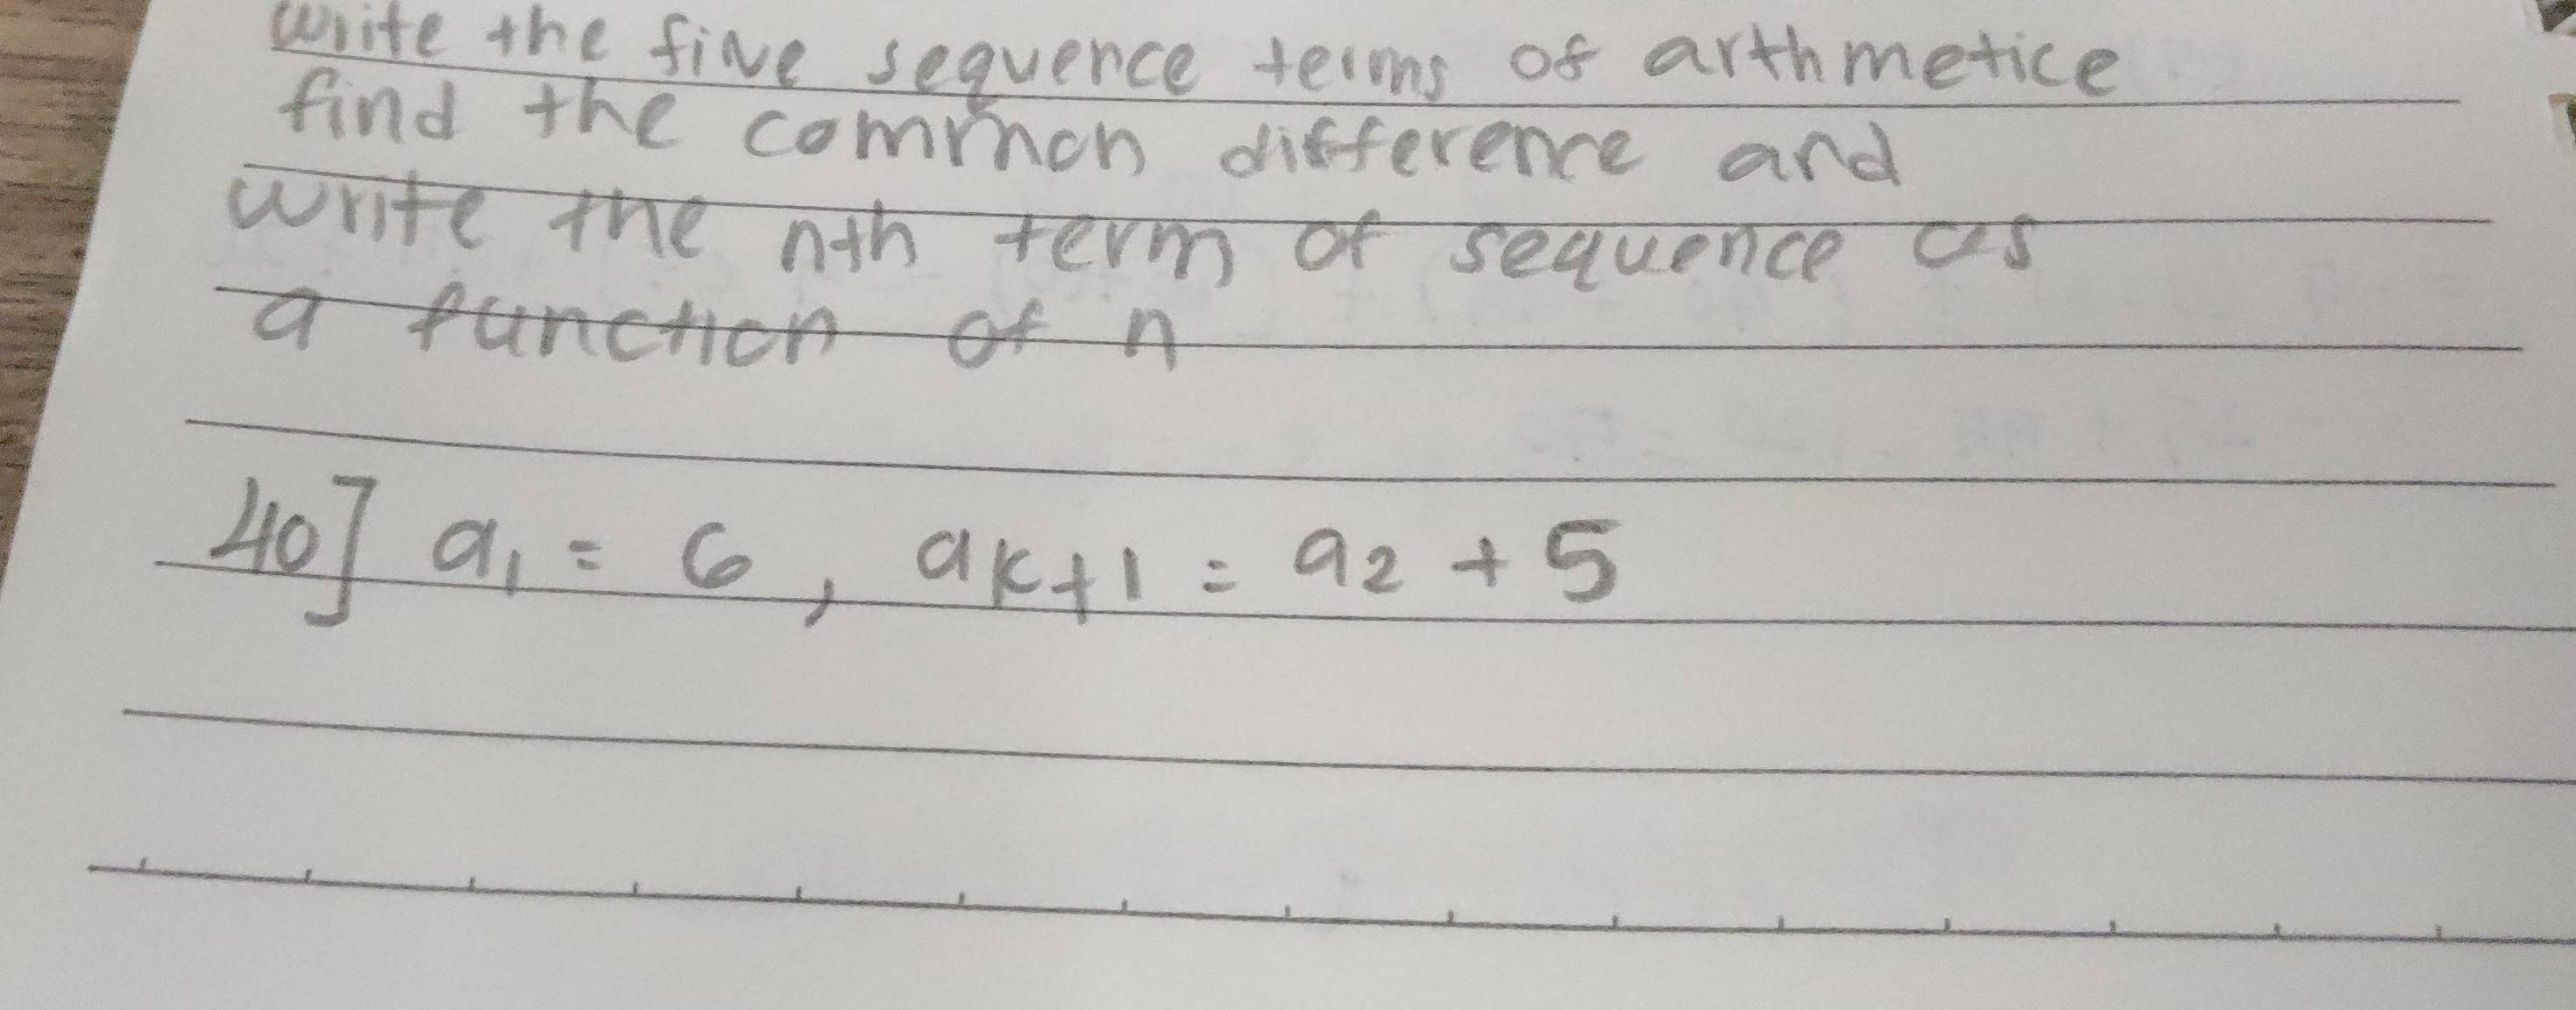 write the five sequence terms of arthmetice
find the common difference and
write the nth term of sequence as
a function of n
40] a₁ = 6, aₖ₊₁ = a₂ + 5